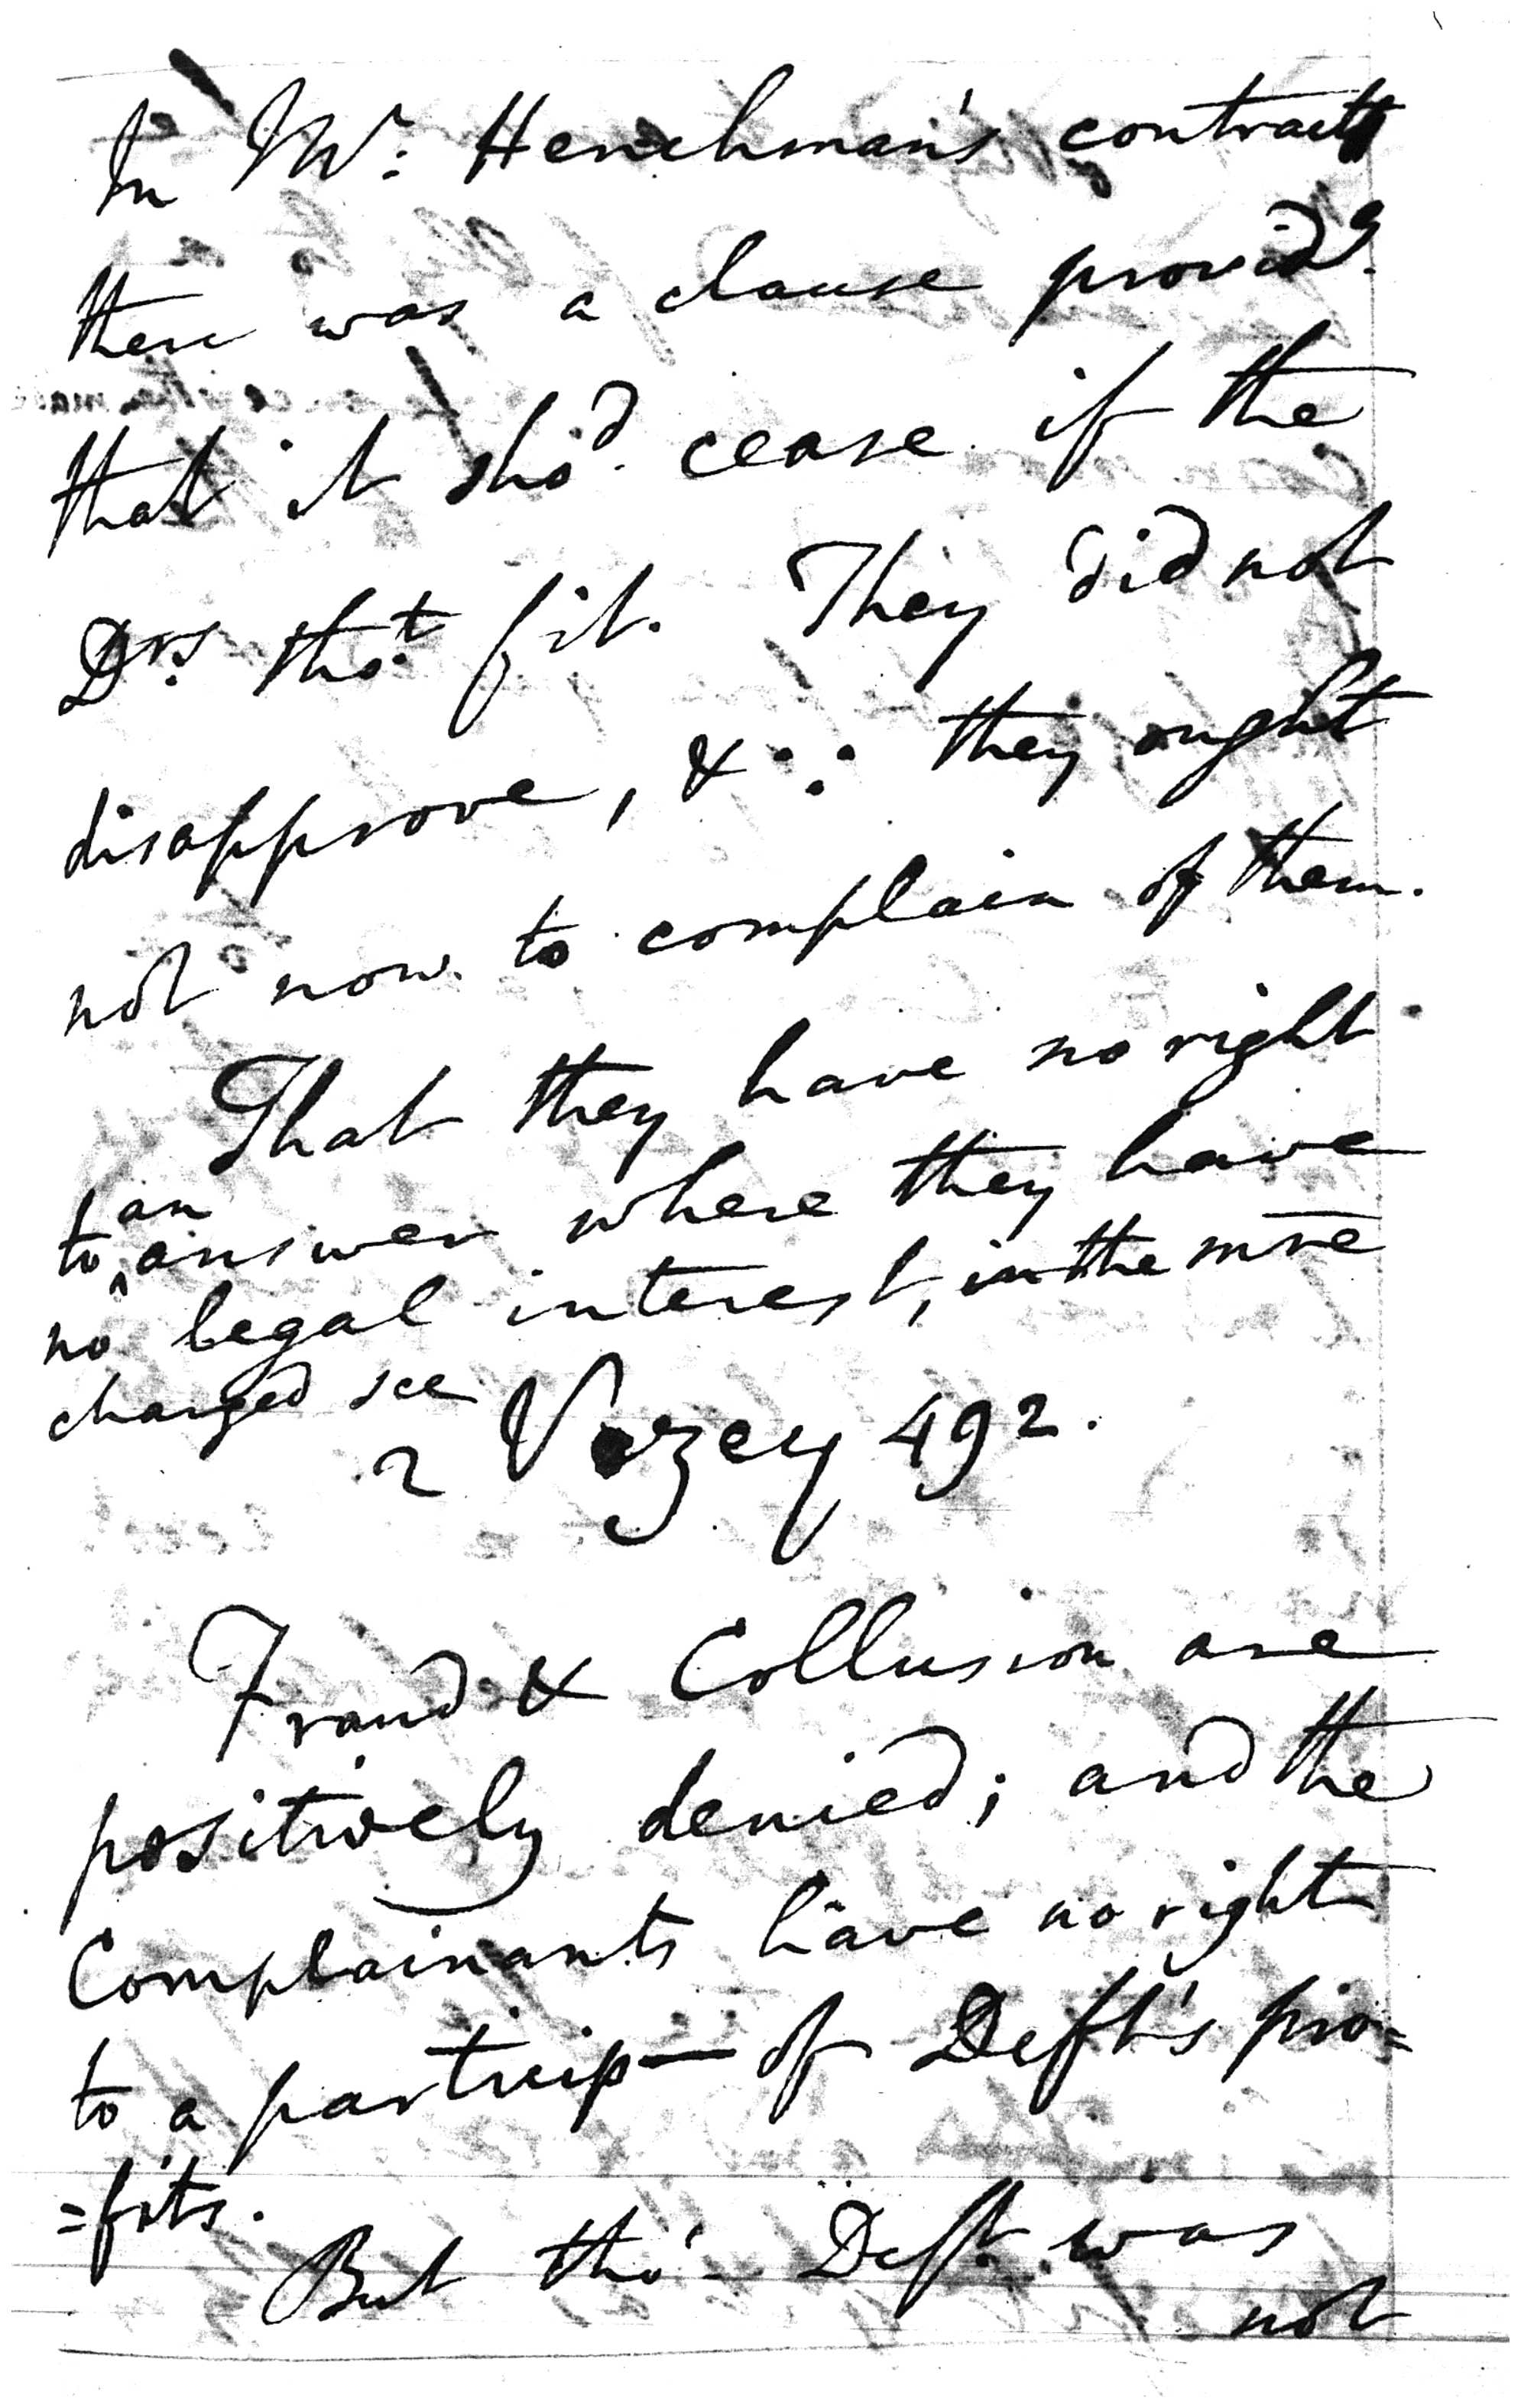 In Mr: Henchman's contract
there was a clause provid.g
that it sho.d cease if the
Drs. tho.t fit. They did not
disapprove, & ∴ they ought
not now to complain of them.
That they have no right
to an answer where they have
no legal interest, in the mre
charged see
2 Vezey 492.
Fraud & Collusion are
positively denied; and the
Complainants have no right
to a particip— of Deft's pro=
=fits.
But tho' Deft. was
not